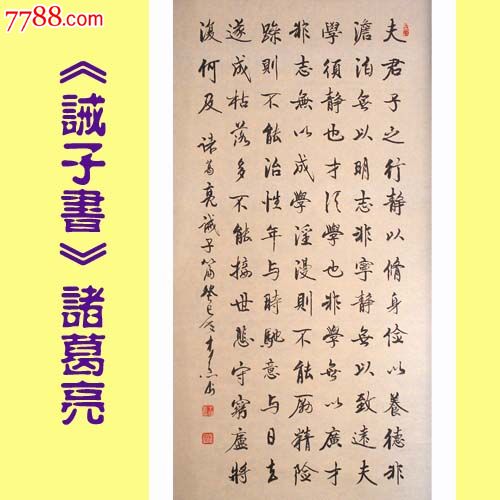 7788.com
《誡子書》諸葛亮
夫君子之行静以脩身俭以養德非
澹泊無以明志非寧静無以致遠夫
學須静也才须學也非學無以廣才
非志無以成學淫漫則不能励精险
躁則不能治性年与時馳意与日去
遂成枯落多不能接世悲守窮廬將
復何及 诸葛亮誡子篇癸巳冬